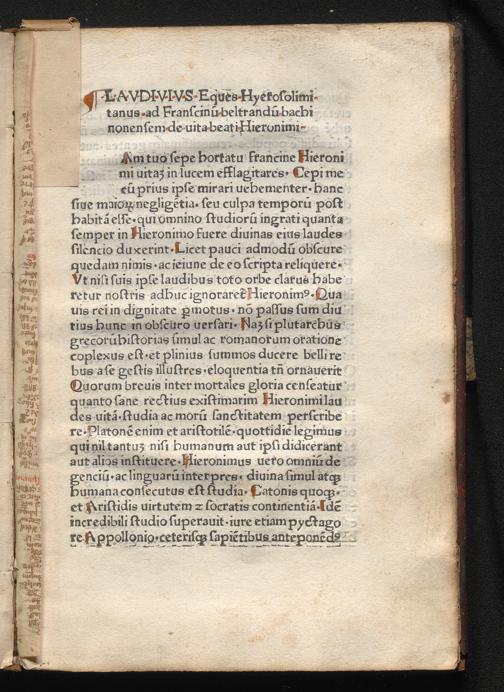 ¶·LAVDIVIVS·Eques·Hyerosolimi-
tanus·ad Franscinū·beltrandū·bachi
nonensem·de·uita·beati·Hieronimi·
Am tuo sepe hortatu francine Hieroni
mi uitaꝫ in lucem efflagitares· Cepi me
cū prius ipse mirari uehementer· hanc
siue maioꝝ negligētia· seu culpa temporū post
habitā esse· qui omnino studiorū ingrati quanta
semper in Hieronimo fuere diuinas eius laudes
silencio duxerint· Licet pauci admodū obscure
quedam nimis· ac ieiune de eo scripta reliquere·
Vt nisi suis ipse laudibus toto orbe clarus habe
retur nostris adhuc ignoraret Hieronimꝰ· Qua
uis rei in dignitate ꝑmotus· nō passus sum diu
tius hunc in obscuro uersari· Naꝫ si plutarchus
grecorū historias simul ac romanorum oratione
coplexus est· et plinius summos ducere belli re
bus ase gestis illustres· eloquentia tn̄ ornauerit
Quorum breuis inter mortales gloria censeatur
quanto sane rectius existimarim Hieronimi lau
des uitā· studia ac morū sanctitatem perscribe
re· Platonē enim et aristotilē· quottidie legimus
qui nil tantuꝫ nisi humanum aut ipsi didicerant
aut alios instituere· Hieronimus uero omniū de
genciū· ac linguarū interpres· diuina simul atqꝫ
humana consecutus est studia· Catonis quoqꝫ·
et Aristidis uirtutem ꝛ socratis continentiā· Idē
incredibili studio superauit· iure etiam pyctago
re Appollonio· ceterisqꝫ sapiētibus anteponēdꝰ